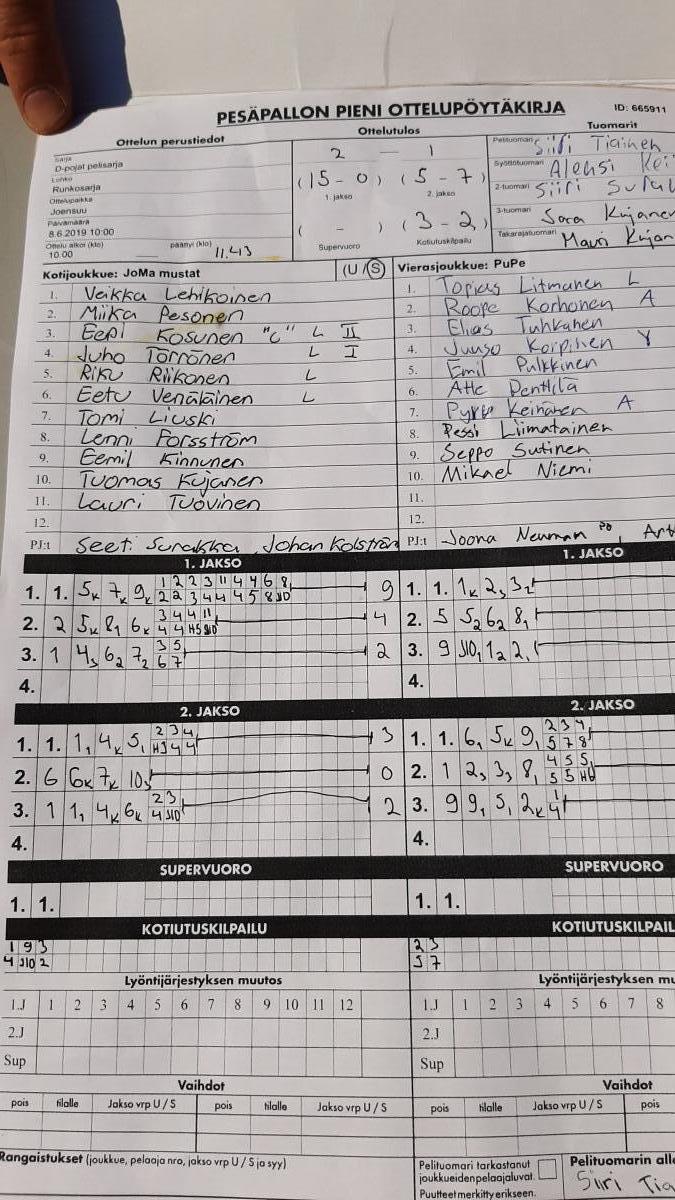 PESÄPALLON PIENI OTTELUPÖYTÄKIRJA ID: 665911
Ottelun perustiedot
Sarja
D-pojat pelisarja
Lohko
Runkosarja
Ottelupaikka
Joensuu
Päivämäärä
8.6.2019 10:00
Ottelu alkoi (klo) päättyi (klo)
10.00 11.43
Ottelutulos
2 — 1
(15 - 0) (5 - 7)
1. jakso 2. jakso
( - ) (3 - 2)
Supervuoro Kotiutuskilpailu
Tuomarit
Pelituomari Siiri Tiainen
Syöttötuomari Aleksi
2-tuomari Siiri
3-tuomari Sara Kujanen
Takarajatuomari Mauri Kujan
Kotijoukkue: JoMa mustat (U / S)
1. Veikka Lehikoinen
2. Miika Pesonen
3. Eepi Kosunen "C" L II
4. Juho Törrönen L I
5. Riku Riikonen L
6. Eetu Venäläinen L
7. Tomi Liuski
8. Lenni Forsström
9. Eemil Kinnunen
10. Tuomas Kujanen
11. Lauri Tuovinen
12.
PJ:t Seeti Surakka, Johan Kolström
Vierasjoukkue: PuPe
1. Topias Litmanen L
2. Roope Korhonen A
3. Elias Tuhkanen
4. Juuso Korpinen V
5. Emil Pulkkinen
6. Atte Penttilä
7. Pyry Keinänen A
8. Pessi Liimatainen
9. Seppo Sutinen
10. Mikael Niemi
11.
12.
PJ:t Joona Neuman
1. JAKSO
1. 1. 5K 7K 9K 1 2 2 3 11 4 4 6 8 9
2 2 3 4 4 4 5 8 J10
2. 2 5K 8 6K 3 4 4 11 4
4 4 H5 J10
3. 1 4 6 7 3 5 2
6 7
4.
1. JAKSO
1. 1. 1K 2 3
2. 5 5 6 8
3. 9 J10 1 2
4.
2. JAKSO
1. 1. 1 4K 5 2 3 4 3
HJ 4 4
2. 6 6K 7K 10 0
3. 1 1 4K 6K 2 3 2
4 J10
4.
2. JAKSO
1. 1. 6 5K 9 2 3 4
5 7 8
2. 1 2 3 8 4 5 5
5 5 H6
3. 9 9 5 2K 1
4
4.
SUPERVUORO
1. 1.
SUPERVUORO
1. 1.
KOTIUTUSKILPAILU
1 9 3
4 J10 2
KOTIUTUSKILPAIL
2 3
5 7
Lyöntijärjestyksen muutos
1.J 1 2 3 4 5 6 7 8 9 10 11 12
2.J
Sup
Lyöntijärjestyksen mu
1.J 1 2 3 4 5 6 7 8
2.J
Sup
Vaihdot
pois tilalle Jakso vrp U / S pois tilalle Jakso vrp U / S
Vaihdot
pois tilalle Jakso vrp U / S pois
Rangaistukset (joukkue, pelaaja nro, jakso vrp U / S ja syy)
Pelituomari tarkastanut
joukkueidenpelaajaluvat.
Puutteet merkitty erikseen.
Pelituomarin alle
Siiri Tia